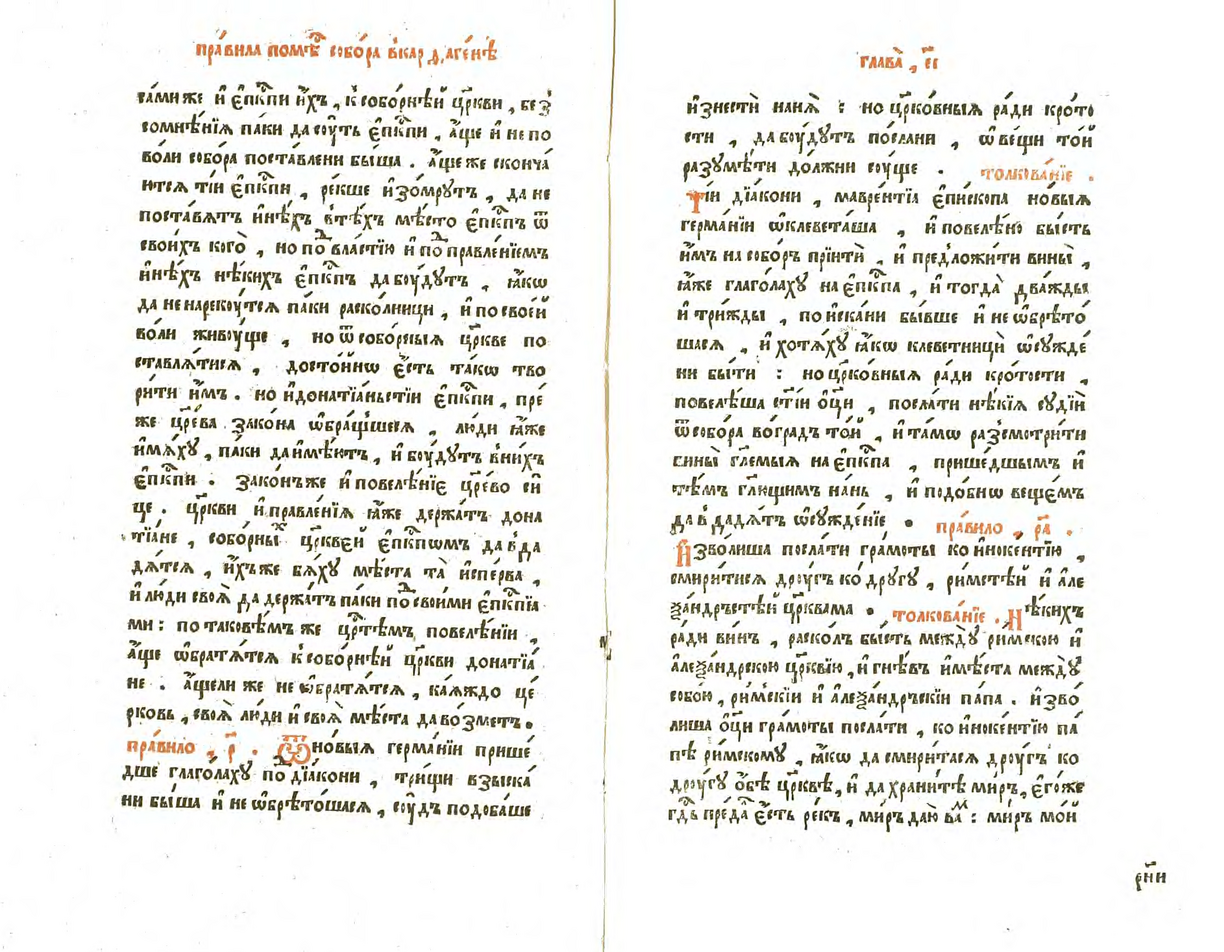 пра́вила помѣ́ст собо́ра в̾карѳаге́нѣ
са́ми же и҆ є҆пⷭ҇кпи и҆́хъ , к̾собо́рнѣй цр҃кви , без̾
сомнѣ́нїѧ па́ки да сꙋ́ть є҆пⷭ҇кпи , а҆́ще и҆ не по
во́ли собо́ра поста́влени бы́ша . а҆́ще же сконча́
ютсѧ ті́и є҆пⷭ҇кпи , ре́кше и҆зо́мрꙋтъ , да не
поста́вѧтъ и҆нѣ́хъ в̾тѣ́хъ мѣ́сто є҆пⷭ҇кпъ ѿ
свои́хъ кого̀ , но поⷣ вла́стїю и҆ поⷣ правле́нїемъ
и҆нѣ́хъ нѣ́кихъ є҆пⷭ҇кпъ да бꙋ́дꙋтъ , ꙗ҆́кѡ
да не нарекꙋ́тсѧ па́ки раско́лници , и҆ по свое́й
во́ли живꙋ́ще , но ѿ собо́рныѧ цр҃кве по
ставлѧ́тисѧ , досто́йнѡ є҆́сть та́кѡ тво
ри́ти и҆̀мъ . но и҆ донатїа́ньстїи є҆пⷭ҇кпи , пре́
же цр҃е́ва зако́на ѡ҆бра́щшеесѧ , лю́ди ꙗ҆̀же
и҆мѧ́хꙋ , па́ки да и҆мѣ́ютъ , и҆ бꙋ́дꙋтъ в̾ни́хъ
є҆пⷭ҇кпи . зако́нъ же и҆ повелѣ́нїе цр҃е́во си́
це . цр҃кви и҆ правле́нїѧ ꙗ҆̀же держа́тъ дона
тїа́не , собо́рныⷯ цр҃кве́й є҆пⷭ҇кпѡмъ да в̾да
дѧ́тсѧ , и҆́хъ же бѧ́хꙋ мѣ́ста та̀ и҆спе́рва ,
и҆ лю́ди своѧ̀ да держа́тъ па́ки поⷣ свои́ми є҆пⷭ҇кпїа
ми : по таково́мъ же цр҃стѣ́мъ повелѣ́нїи ,
а҆́ще ѡ҆братѧ́тсѧ к̾собо́рнѣй цр҃кви донатїа́
не . а҆́ще ли же не ѡ҆братѧ́тсѧ , ка́ѧждо це́
рковь , своѧ̀ лю́ди и҆ своѧ̀ мѣ́ста да во́зметъ .
пра́вило , р҃ . Ѿ но́выѧ герма́нїи прише́
дше глаго́лахꙋ поⷣдїа́кони , три́щи взыска́
ни бы́ша и҆ не ѡ҆брѣто́шасѧ , сꙋ́дъ подоба́ше
глава̀ , є҃і
и҆знестѝ на нѧ̀ : но цр҃ко́вныѧ ра́ди кро́то
сти , да бꙋ́дꙋтъ по́слани , ѡ҆ ве́щи то́й
разꙋмѣ́ти до́лжни сꙋ́ще . толкова́нїе .
Ті́и дїа́кони , мавре́нтїа є҆пи́скопа но́выѧ
герма́нїи ѡ҆клевета́ша , и҆ повелѣ́но бы́сть
и҆̀мъ на собо́ръ прїитѝ , и҆ предложи́ти вины̀ ,
ꙗ҆̀же глаго́лахꙋ на є҆пⷭ҇кпа , и҆ тогда̀ два́жды
и҆ три́жды , по и҆ска́ни бы́вше и҆ не ѡ҆брѣто́
шасѧ , и҆ хотѧ́хꙋ ꙗ҆́кѡ клеветницы̀ ѡ҆сꙋжде́
ни бы́ти : но цр҃ко́вныѧ ра́ди кро́тости ,
повелѣ́ша ст҃і́и ѻ҆ц҃ы , посла́ти нѣ́кїѧ сꙋдїѝ
ѿ собо́ра во гра́дъ то́й , и҆ та́мѡ раз̾смотри́ти
вины̀ гл҃емыѧ на є҆пⷭ҇кпа , прише́дшымъ и҆
тѣ́мъ гл҃ющимъ на́нь , и҆ подо́бнѡ веще́мъ
да в̾дадѧ́тъ ѡ҆сꙋжде́нїе . пра́вило , р҃а .
И҆зво́лиша посла́ти гра́моты ко и҆ноке́нтїю ,
смири́тисѧ дрꙋ́гъ ко дрꙋ́гꙋ , ри́мстѣй и҆ але
ѯа́ндрьстѣй цр҃квама . толкова́нїе . Нѣ́кихъ
ра́ди ви́нъ , раско́лъ бы́сть междꙋ̀ ри́мскою и҆
а҆леѯа́ндрскою цр҃квїю , и҆ гнѣ́въ и҆мѣ́ста междꙋ̀
собо́ю , ри́мскїи и҆ а҆леѯа́ндръскїи па́па . и҆зво́
лиша ѻ҆ц҃ы гра́моты посла́ти , ко и҆ноке́нтїю па́
пѣ ри́мскомꙋ , ꙗ҆́кѡ да смири́тасѧ дрꙋ́гъ ко
дрꙋ́гꙋ ѻ҆́бѣ цр҃квѣ , и҆ да храни́тѣ ми́ръ , є҆го́же
гдⷭ҇ь преда́л є҆́сть ре́къ , ми́ръ даю̀ ваⷨ : ми́ръ мо́й
рн҃и